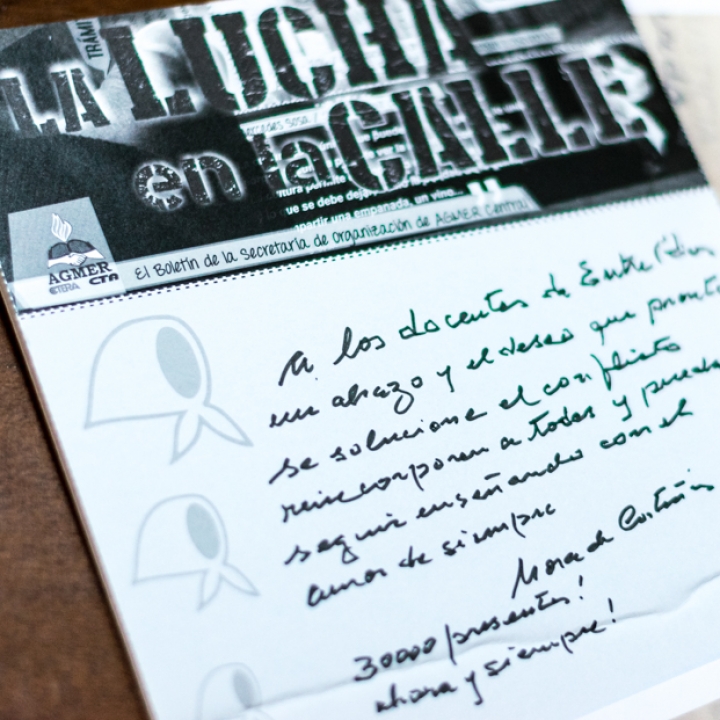 TRAMI
LA LUCHA
en la CALLE
ue se debe deja
apartir una empanada, un vino...
El Boletín de la Secretaría de Organización de AGMER Central
AGMER
CTERA CTA
A los docentes de Entre Ríos
un abrazo y el deseo que pronto
se solucione el conflicto
reincorporen a todos y puedan
seguir enseñando con el
amor de siempre
Nora de Cortiñas
30000 presentes!
ahora y siempre!